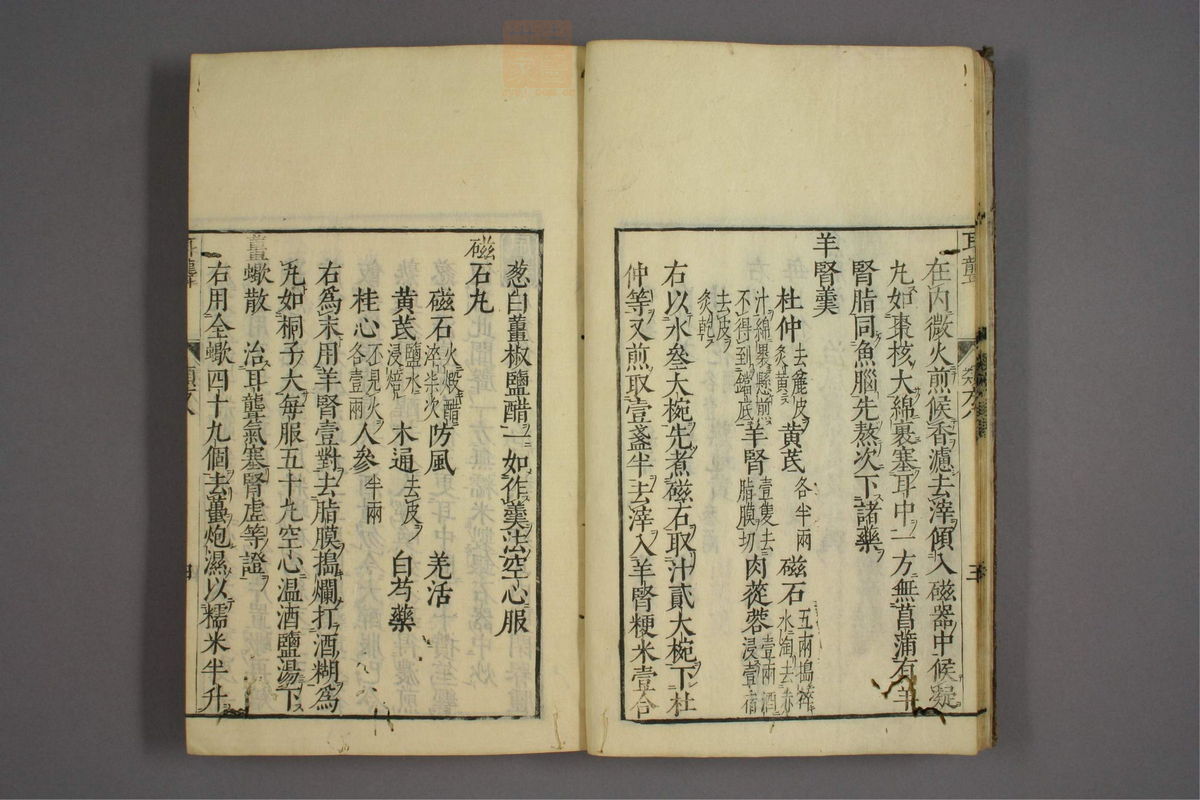 在內微火煎候香濾去滓傾入磁器中候凝
丸如棗核大綿裹塞耳中一方無菖蒲有羊
腎脂同魚腦先熬次下諸藥
羊腎羹
杜仲去麄皮炙黃黃芪各半兩磁石五兩搗碎水淘去赤
汁綿裹懸煎不得到鐺底羊腎壹隻去脂膜切肉蓯蓉壹兩酒浸壹宿
去皮炙乾
右以水叄大椀先煮磁石取汁貳大椀下杜
仲等又煎取壹盞半去滓入羊腎粳米壹合
葱白薑椒鹽醋一如作羹法空心服
磁石丸
磁石火煅醋淬半次防風 羌活
黃芪鹽水浸焙木通去皮 白芍藥
桂心不見火各壹兩人參半兩
右爲末用羊腎壹對去脂膜搗爛打酒糊爲
丸如桐子大每服五十丸空心温酒鹽湯下
薑蠍散 治耳聾氣塞腎虛等證
右用全蠍四十九個去薑炮濕以糯米半升
耳聾